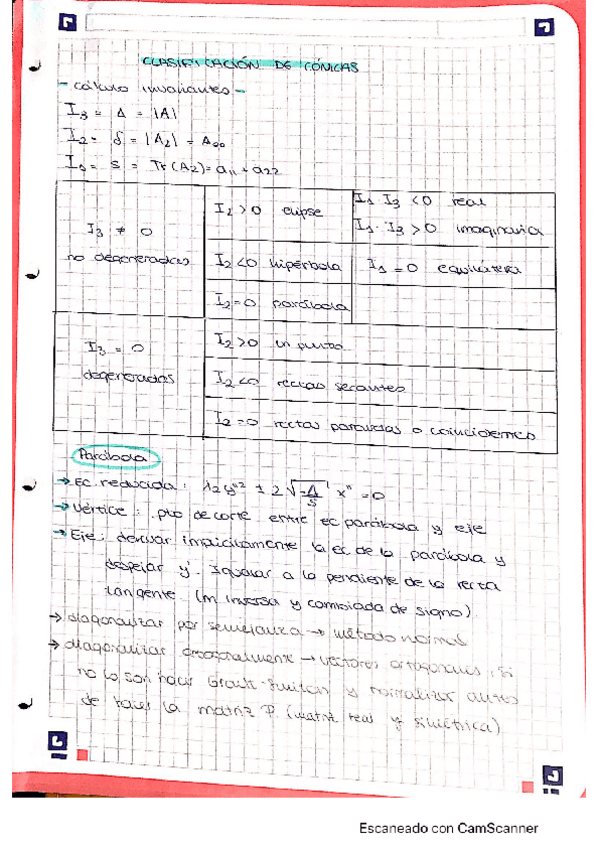 CLASIFICACIÓN DE CÓNICAS
- Cálculo invariantes -
I3 = Δ = |A|
I2 = δ = |A2| = A00
I1 = s = Tr(A2) = a11 + a22
I3 ≠ 0
no degeneradas
I2 > 0 elipse
I1 · I3 < 0 real
I1 · I3 > 0 imaginaria
I2 < 0 hipérbola
I1 = 0 equilátera
I2 = 0 parábola
I3 = 0
degeneradas
I2 > 0 un punto
I2 < 0 rectas secantes
I2 = 0 rectas paralelas o coincidentes
Parábola
→ Ec. reducida: λ2 y''² ± 2 √(-Δ/s) x'' = 0
→ Vértice: pto de corte entre ec parábola y eje
→ Eje: derivar implícitamente la ec de la parábola y
despejar y'. Igualar a la pendiente de la recta
tangente. (m inversa y cambiada de signo)
→ diagonalizar por semejanza → método normal
→ diagonalizar ortogonalmente → vectores ortogonales, si
no lo son hacer Gram-Schmidt y normalizar antes
de hacer la matriz P. (matriz real y simétrica)
Escaneado con CamScanner